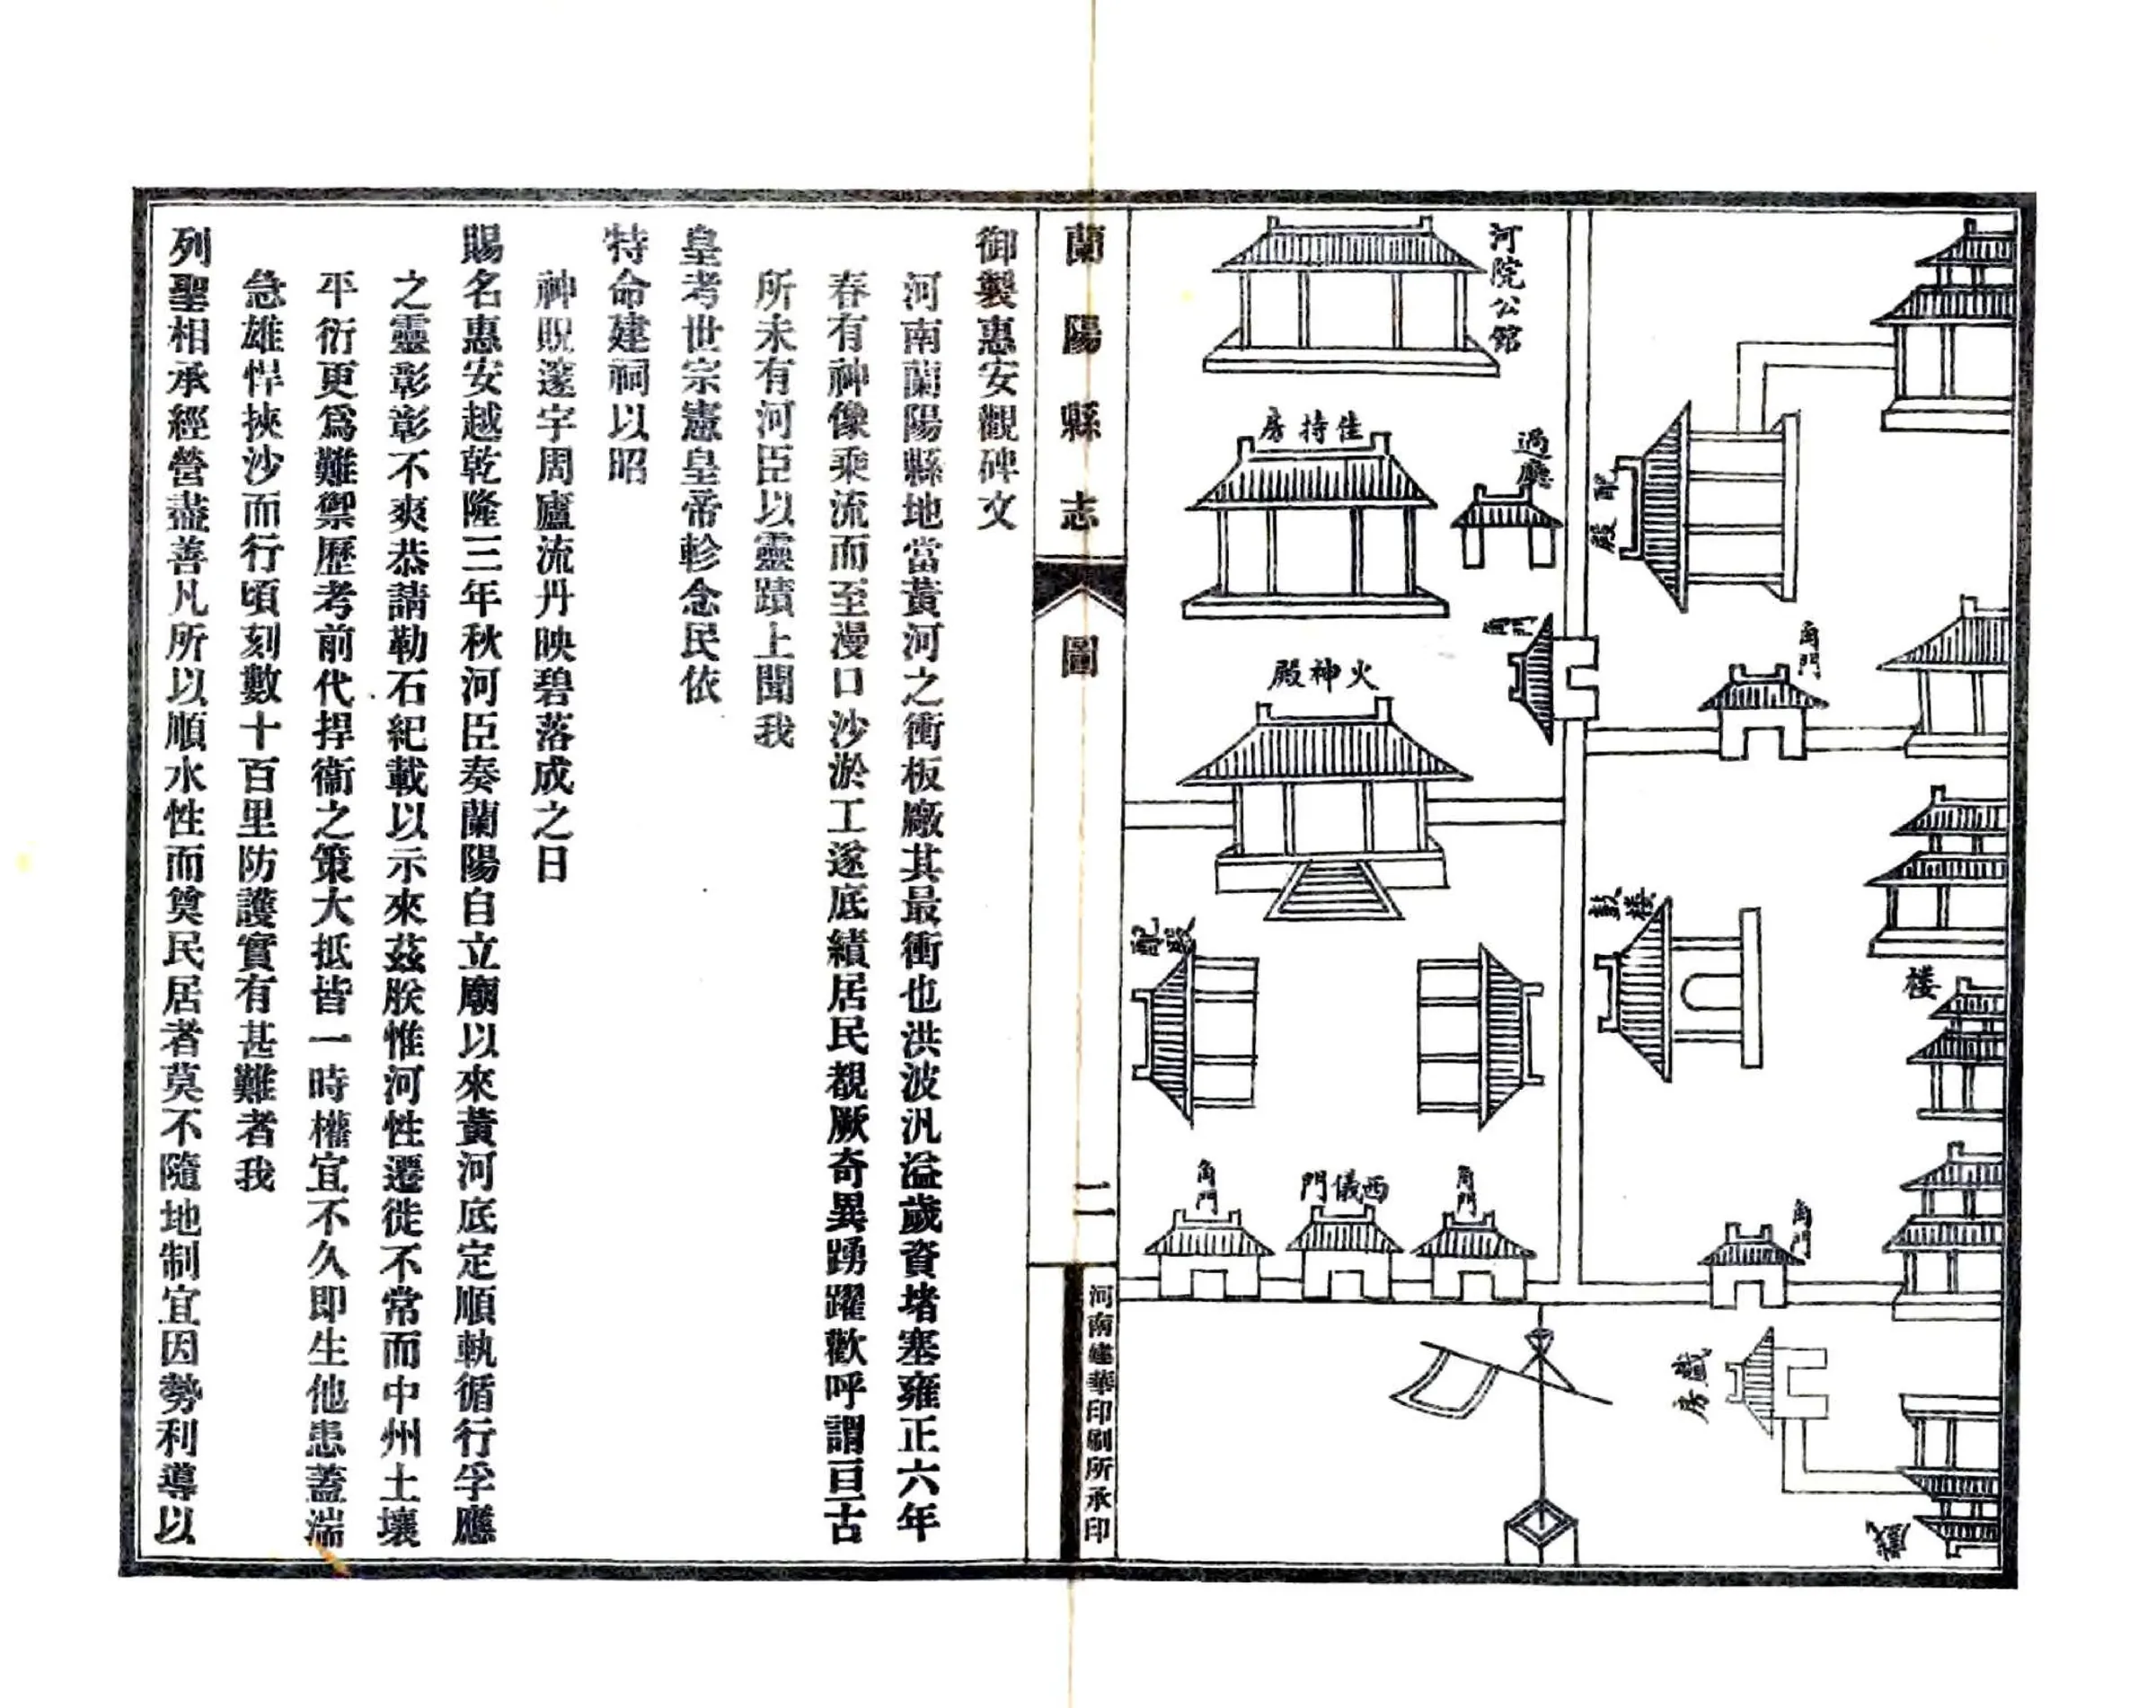 河院公館
住持房
過廳
配殿
角門
火神殿
鼓樓
楼
配殿
角門
西儀門
角門
角門
戲房
戲
蘭陽縣志
圖
二
河南建華印刷所承印
御製惠安觀碑文
河南蘭陽縣地當黃河之衝板廠其最衝也洪波汎溢歲資堵塞雍正六年
春有神像乘流而至漫口沙淤工遂底績居民覩厥奇異踴躍歡呼謂亘古
所未有河臣以靈蹟上聞我
皇考世宗憲皇帝軫念民依
特命建祠以昭
神貺邃宇周廬流丹映碧落成之日
賜名惠安越乾隆三年秋河臣奏蘭陽自立廟以來黃河底定順軌循行孚應
之靈彰彰不爽恭請勒石紀載以示來茲朕惟河性遷徙不常而中州土壤
平衍更爲難禦歷考前代捍衞之策大抵皆一時權宜不久即生他患蓋湍
急雄悍挾沙而行頃刻數十百里防護實有甚難者我
列聖相承經營盡善凡所以順水性而奠民居者莫不隨地制宜因勢利導以